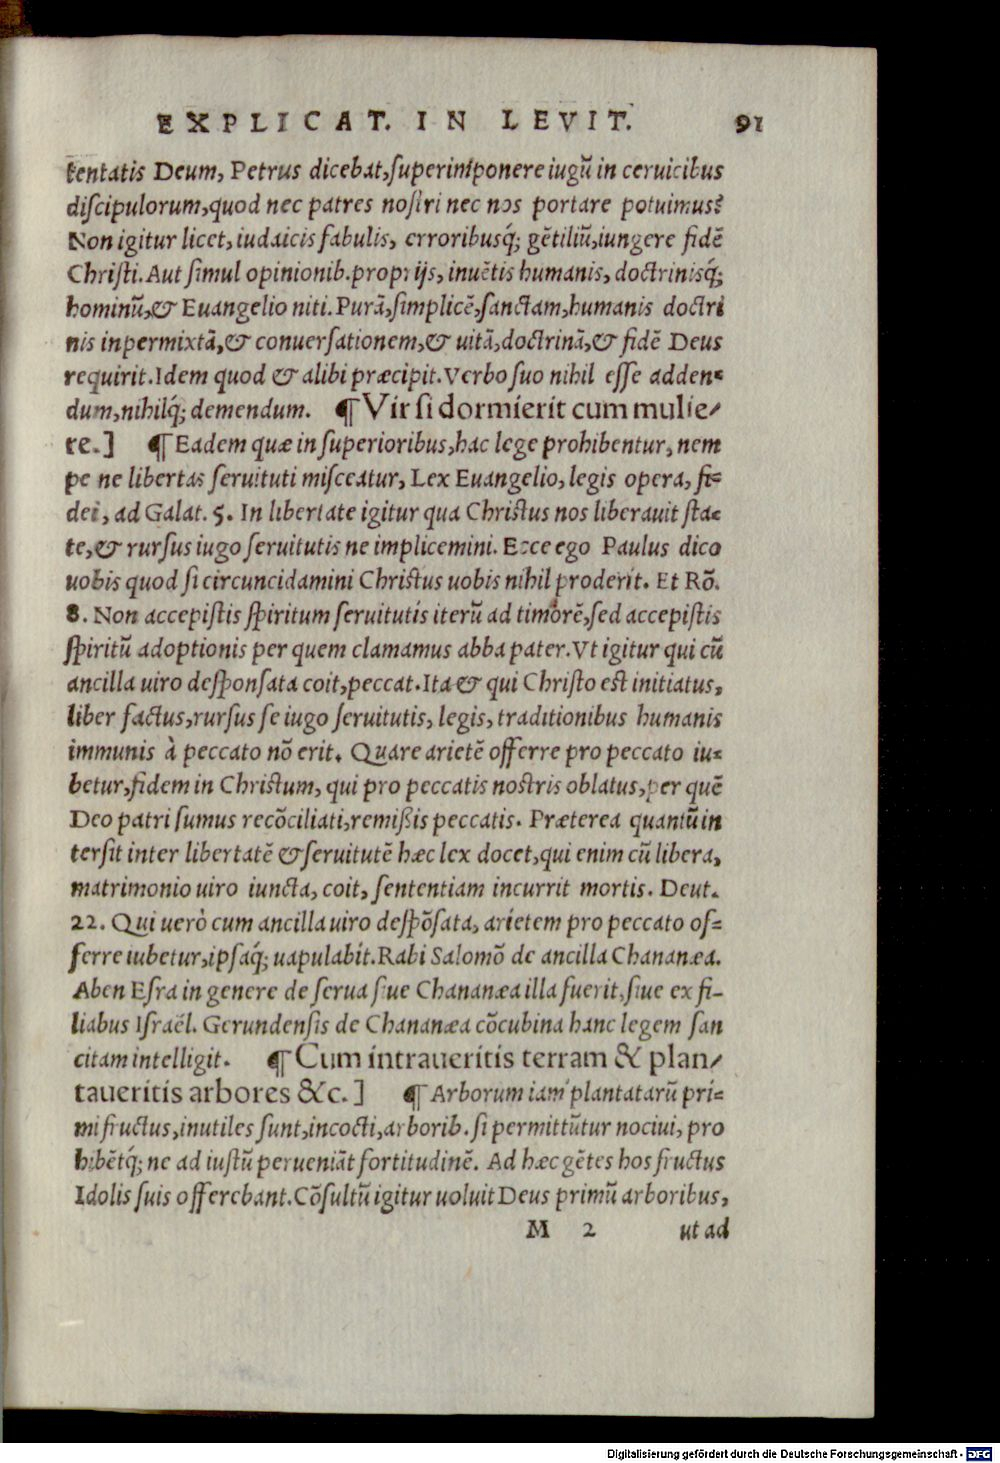 EXPLICAT. IN LEVIT. 91
tentatis Deum, Petrus dicebat,ſuperimponere iugũ in ceruicibus
diſcipulorum,quod nec patres noſtri nec nos portare potuimus?
Non igitur licet, iudaicis fabulis, erroribusq́; gẽtiliũ,iungere fidẽ
Chriſti. Aut ſimul opinionib. proprijs, inuẽtis humanis, doctrinisq́;
hominũ,& Euangelio niti. Purã,ſimplicẽ,ſanctam,humanis doctri
nis inpermixtã,& conuerſationem,& uitã,doctrinã,& fidẽ Deus
requirit. Idem quod & alibi præcipit. Verbo ſuo nihil eſſe adden⸗
dum,nihilq́; demendum. ¶ Vir ſi dormierit cum mulie⸗
re.] ¶ Eadem quæ in ſuperioribus,hac lege prohibentur, nem
pe ne libertas ſeruituti miſceatur, Lex Euangelio, legis opera, fi⸗
dei, ad Galat. 5. In libertate igitur qua Chriſtus nos liberauit ſta⸗
te,& rurſus iugo ſeruitutis ne implicemini. Ecce ego Paulus dico
uobis quod ſi circuncidamini Chriſtus uobis nihil proderit. Et Rõ.
8. Non accepiſtis ſpiritum ſeruitutis iterũ ad timorẽ,ſed accepiſtis
ſpiritũ adoptionis per quem clamamus abba pater. Vt igitur qui cũ
ancilla uiro deſponſata coit,peccat. Ita & qui Chriſto eſt initiatus,
liber factus,rurſus ſe iugo ſeruitutis, legis, traditionibus humanis
immunis à peccato nõ erit. Quare arietẽ offerre pro peccato iu⸗
betur,fidem in Chriſtum, qui pro peccatis noſtris oblatus, per quẽ
Deo patri ſumus recõciliati,remißis peccatis. Præterea quantũ in
terſit inter libertatẽ & ſeruitutẽ hæc lex docet,qui enim cũ libera,
matrimonio uiro iuncta, coit, ſententiam incurrit mortis. Deut.
22. Qui uerò cum ancilla uiro deſpõſata, arietem pro peccato of⸗
ferre iubetur,ipſaq́; uapulabit. Rabi Salomõ de ancilla Chananæa.
Aben Eſra in genere de ſerua ſiue Chananæa illa fuerit, ſiue ex fi⸗
liabus Iſraël. Gerundenſis de Chananæa cõcubina hanc legem ſan
citam intelligit. ¶ Cum intraueritis terram & plan⸗
taueritis arbores &c.] ¶ Arborum iam plantatarũ pri⸗
mi fructus,inutiles ſunt,incocti,arborib. ſi permittũtur nociui, pro
hibẽtq́; ne ad iuſtũ perueniãt fortitudinẽ. Ad hæc gẽtes hos fructus
Idolis ſuis offerebant. Cõſultũ igitur uoluit Deus primũ arboribus,
M 2 ut ad
Digitalisierung gefördert durch die Deutsche Forschungsgemeinschaft - DFG